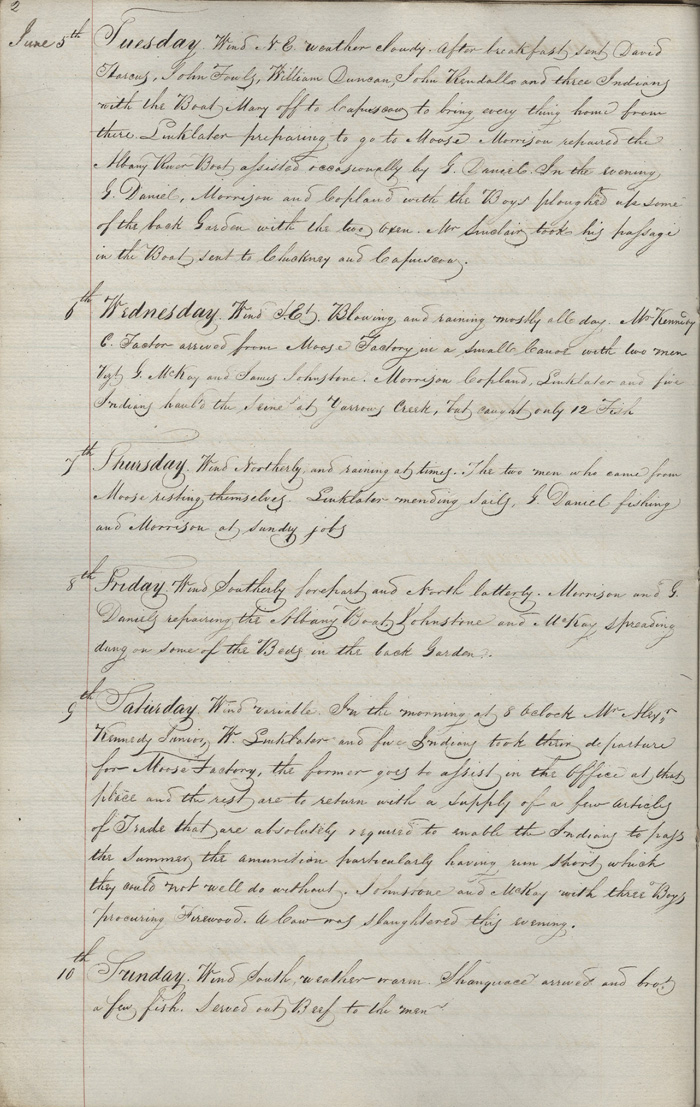 2
June 5th Tuesday. Wind N.E. weather cloudy. After breakfast sent David
Harcus, John Fowls, William Duncan, John Kendall and three Indians
with the Boat Mary off to Capuscow to bring every thing home from
there. Linklater preparing to go to Moose Morrison repaired the
Albany River Boat assisted occasionally by G. Daniel. In the evening
G. Daniel, Morrison and Copland with the Boys ploughed up some
of the back Garden with the two Oxen. Mr Sinclair took his passage
in the Boat sent to Chuckney and Capuscow.
6th Wednesday. Wind S.Et. Blowing and raining mostly all day. Mr Kennedy
C. Factor arrived from Moose Factory in a small Canoe with two men
Vizt G. McKay and James Johnstone. Morrison Copland, Linklater and five
Indians haul'd the Seine at Yarrows Creek, but caught only 12 Fish
7th Thursday. Wind Northerly and raining at times. The two men who came from
Moose resting themselves Linklater mending Sails, G. Daniel fishing
and Morrison at sundry jobs
8th Friday. Wind Southerly forepart and North latterly. Morrison and G.
Daniels repairing the Albany Boat Johnstone and McKay spreading
dung on some of the Beds in the back Garden.
9th Saturday. Wind variable. In the morning at 8 oClock Mr Alexr
Kennedy Junior, W. Linklater and five Indians took their departure
for Moose Factory, the former goes to assist in the Office at that
place and the rest are to return with a supply of a few articles
of Trade that are absolutely required to enable the Indians to pass
the Summer, the amunition particularly having run short which
they could not well do without. Johnstone and McKay with three Boys
procuring Firewood. A Cow was slaughtered this evening.
10th Sunday. Wind South, weather warm. Shanquace arrived and brot
a few fish. Served out Beef to the men